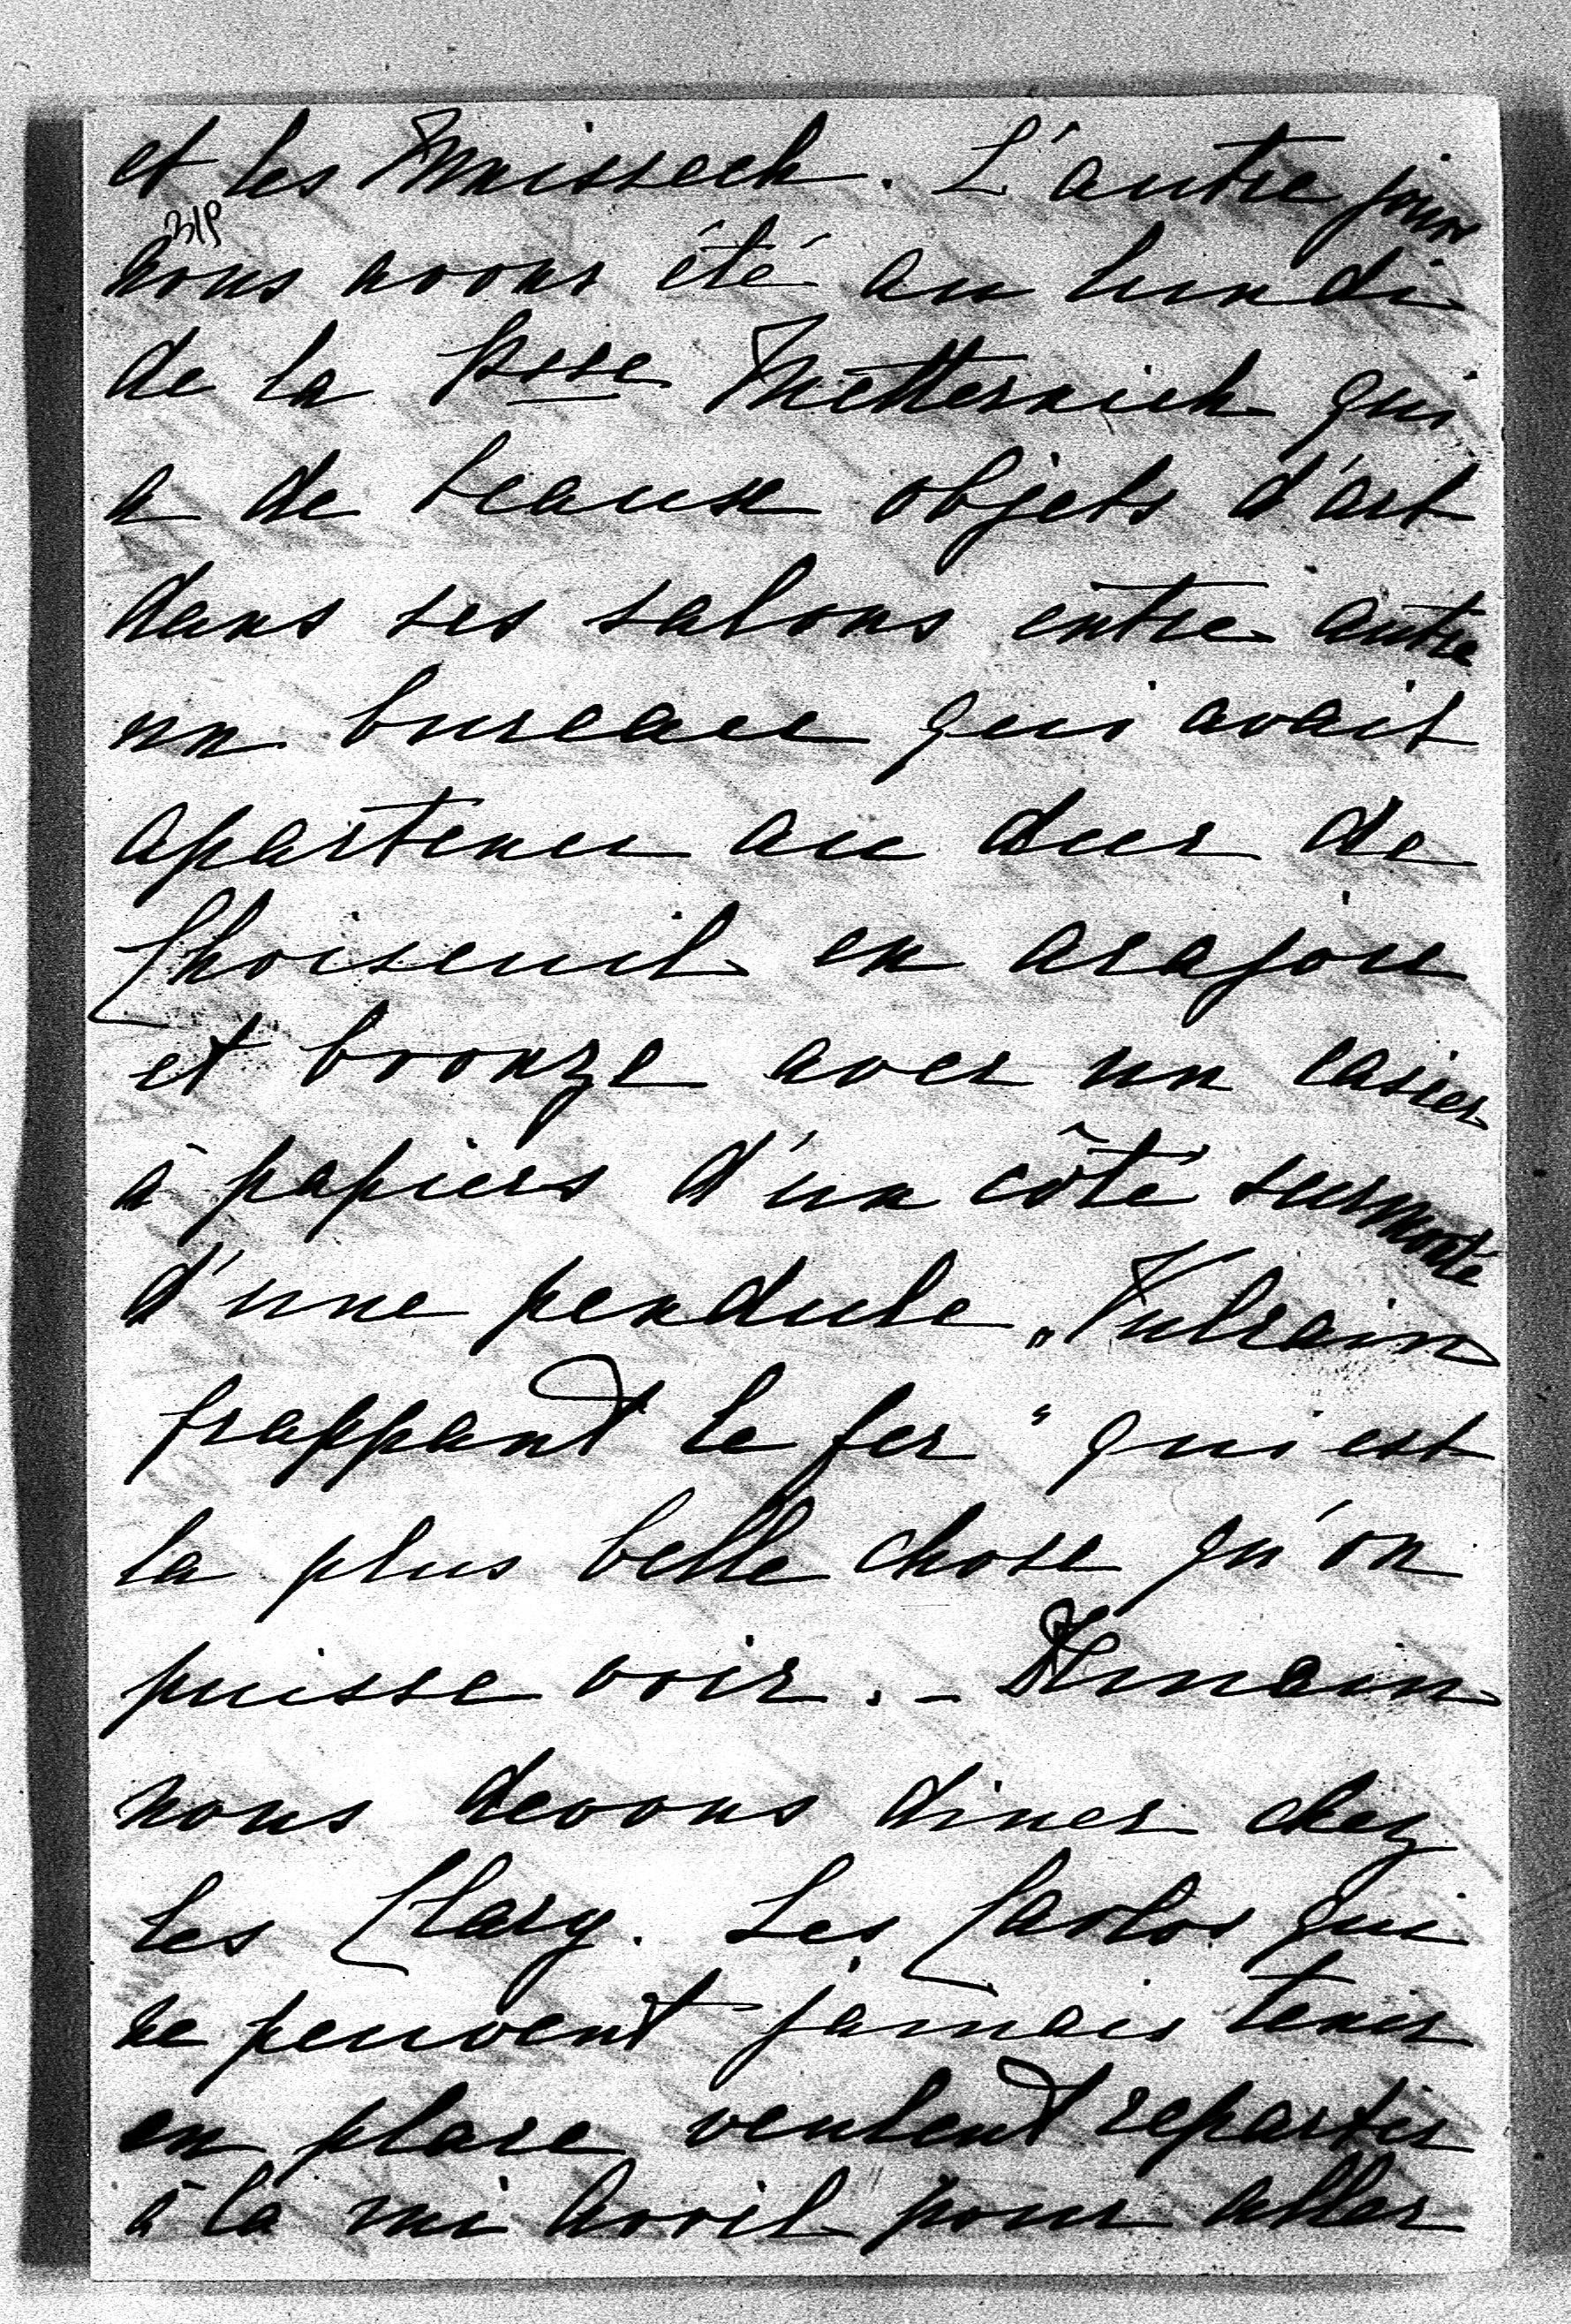 et les Mnissech. L'autre jour
319
nous avons été au lundi
de la Psse Metternich qui
a de beaux objets d'art
dans ses salons entre autre
un bureau qui avait
apartenu au duc de
Choiseuil en acajou
et bronze avec un casier
à papiers d'un côté surmonté
d'une pendule „Vulcain
frappant le fer" qui est
la plus belle chose qu'on
puisse voir. – Demain
nous devons diner chez
les Clary. Les Carlos qui
ne peuvent jamais tenir
en place veulent repartir
à la mi Avril pour aller